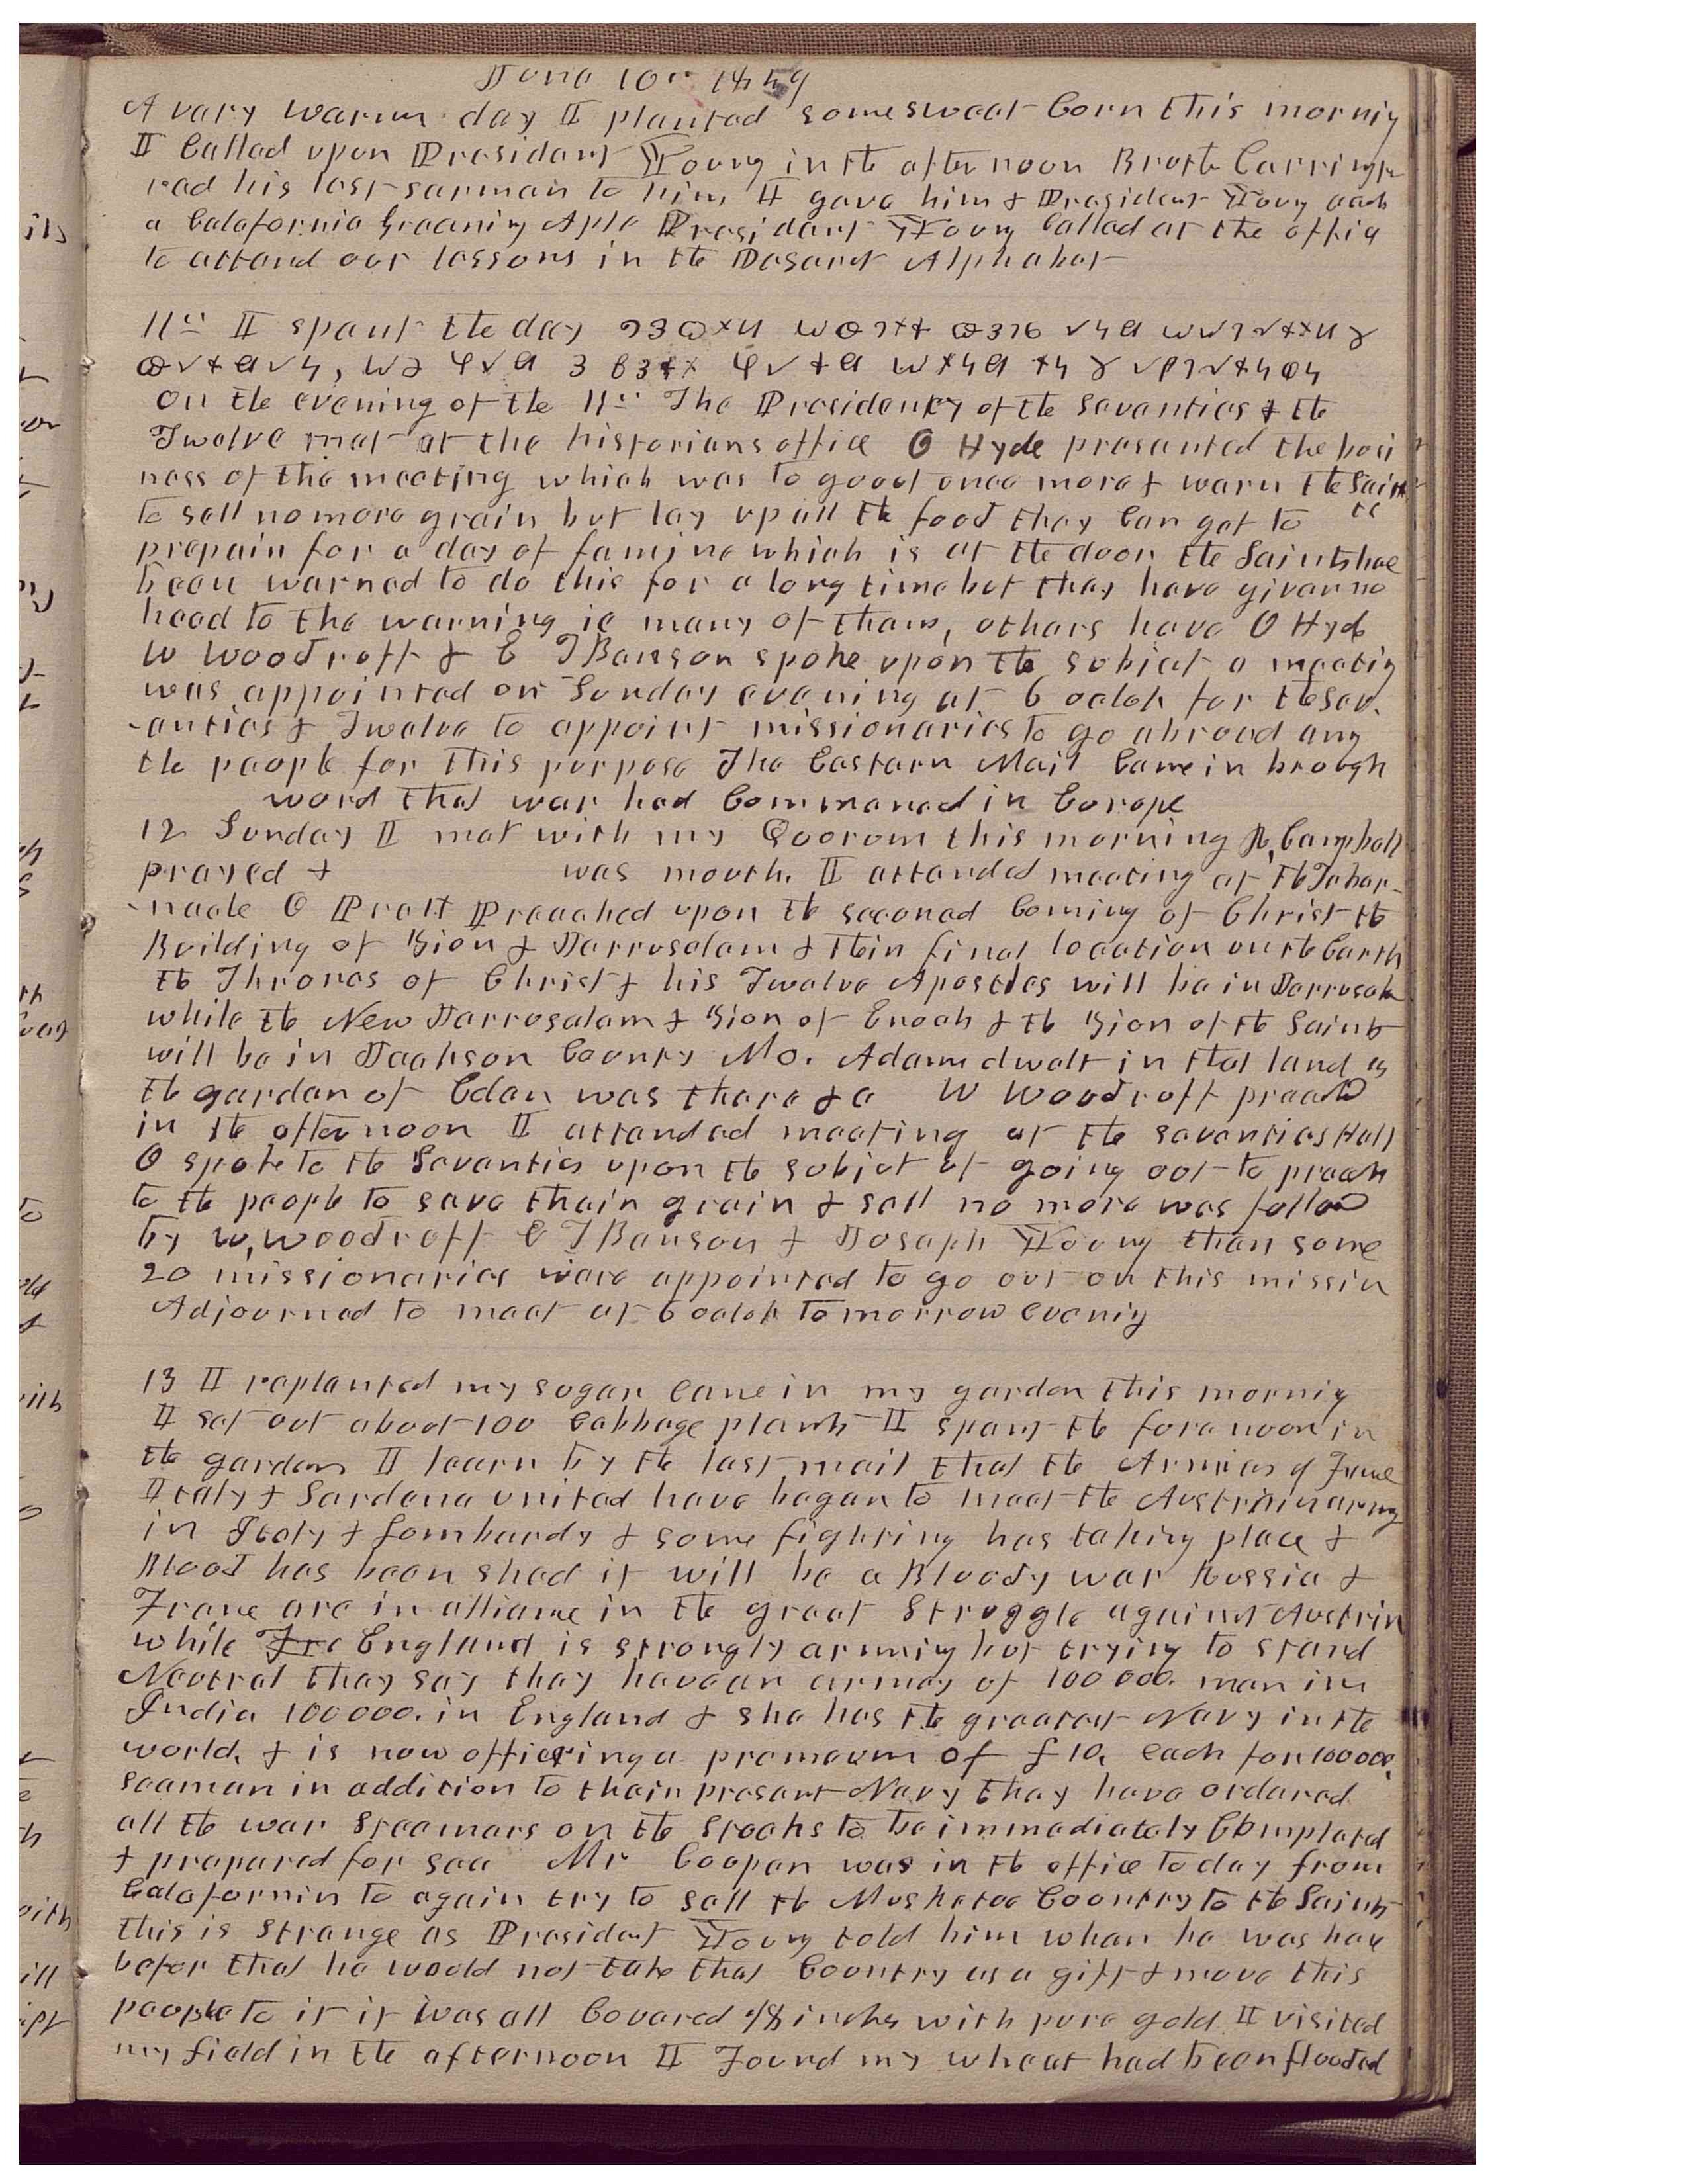 June 10th 1859
A very warm day I planted some sweet Corn this mornig
I Called upon President Young in the after noon Broth Carringtn
red his last sermon to him I gave him & President Young each
a Calafornia Greening Aple President Young Called at the offic
to attend our lessons in the Deseret Alphabet
11th I spent the day
On the evening of the 11th The Presidency of the Seventies & the
Twelve met at the historians office O Hyde presented the busi
ness of the meeting which was to go out once more & warn the Saints
to sell no more grain but lay up all the food they Can get to
prepair for a day of famine which is at the door the Saints have
been warned to do this for a long time but they have given no
heed to the warning ie many of them, others have O Hyde
W Woodruff & E T Benson spoke upon the subjet a meetig
was appointed on Sunday evening at 6 oclok for the Sev-
-enties & Twelve to appoint missionaries to go abroad amg
the people for this purpose The Eastern Mail Came in brough
word that war had Commenced in Europe
12 Sunday I met with my Quorum this morning R, Campbell
prayed & was mouth. I attended meeting at the Taber-
-nacle O Pratt Preached upon the seconed Coming of Christ the
Building of Zion & Jerrusalem & their final location on the Earth
the Thrones of Christ & his Twelve Apostles will be in Jerrusalem
while the New Jerrusalem & Zion of Enoch & the Zion of the Saints
will be in Jackson County Mo. Adam dwelt in that land as
the garden of Eden was there &c W Woodruff preachd
in the afternoon I attended meeting at the seventies Hall
O spoke to the Seventies upon the subjet of going out to preach
to the people to save their grain & sell no more was follod
by W, Woodruff E T Benson & Joseph Young then some
20 missionaries were appointed to go out on this missin
Adjourned to meet at 6 oclok tomorrow evenig
13 I replanted my sugar cane in my garden this mornig
I set out about 100 Cabbage plants I spent the forenoon in
the garden I learn by the last mail that the Armies of France
Italy & Sardena united have began to meet the Austriain army
in Italy & Lombardy & some fighting has taking place &
Blood has been shed it will be a Bloody war Russia &
France are in alliance in the great Struggle against Austria
while Fre England is strongly armig but tryig to stand
Neutral they say they have an armey of 100000. men in
India 100000. in England & she has the greatest Navy in the
world, & is now officering a premeum of £10, each for 100000,
seaman in addition to their present Navy they have ordered
all the war Steamers on the Stocks to be immediately Completed
& prepared for sea Mr Cooper was in the office to day from
Calafornia to again try to sell the Musketoe Country to the Saints
this is Strange as President Young told him when he was here
befor that he would not take that Country as a gift & move this
people to it if it was all Covered inches with pure gold I visited
my field in the afternoon I Found my wheat had been flooded